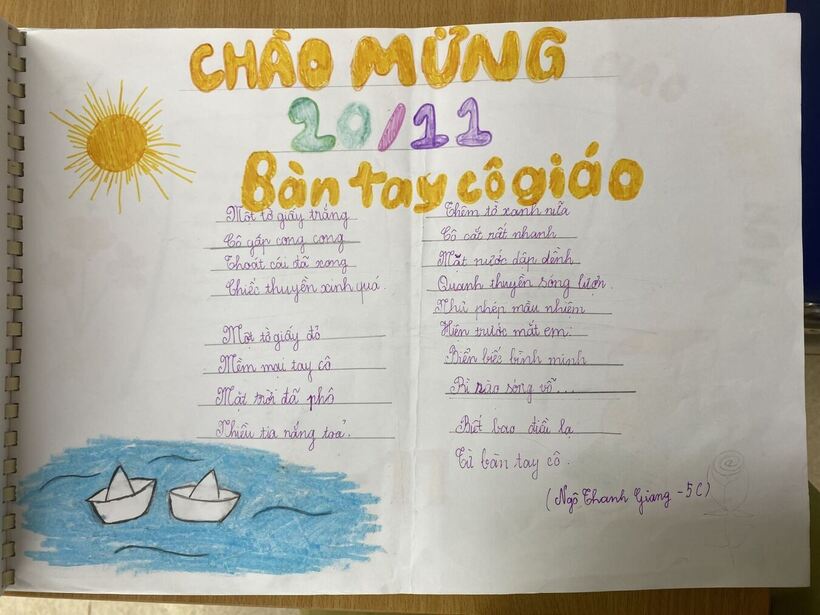 CHÀO MỪNG
20/11
Bàn tay cô giáo
Một tờ giấy trắng
Cô gấp cong cong
Thoắt cái đã xong
Chiếc thuyền xinh quá.
Một tờ giấy đỏ
Mềm mại tay cô
Mặt trời đã phô
Nhiều tia nắng toả.
Thêm tờ xanh nữa
Cô cắt rất nhanh
Mặt nước dập dềnh
Quanh thuyền sóng lượn.
Như phép mầu nhiệm
Hiện trước mắt em:
Biển biếc bình minh
Rì rào sóng vỗ...
Biết bao điều lạ
Từ bàn tay cô.
(Ngô Thanh Giang - 5C)